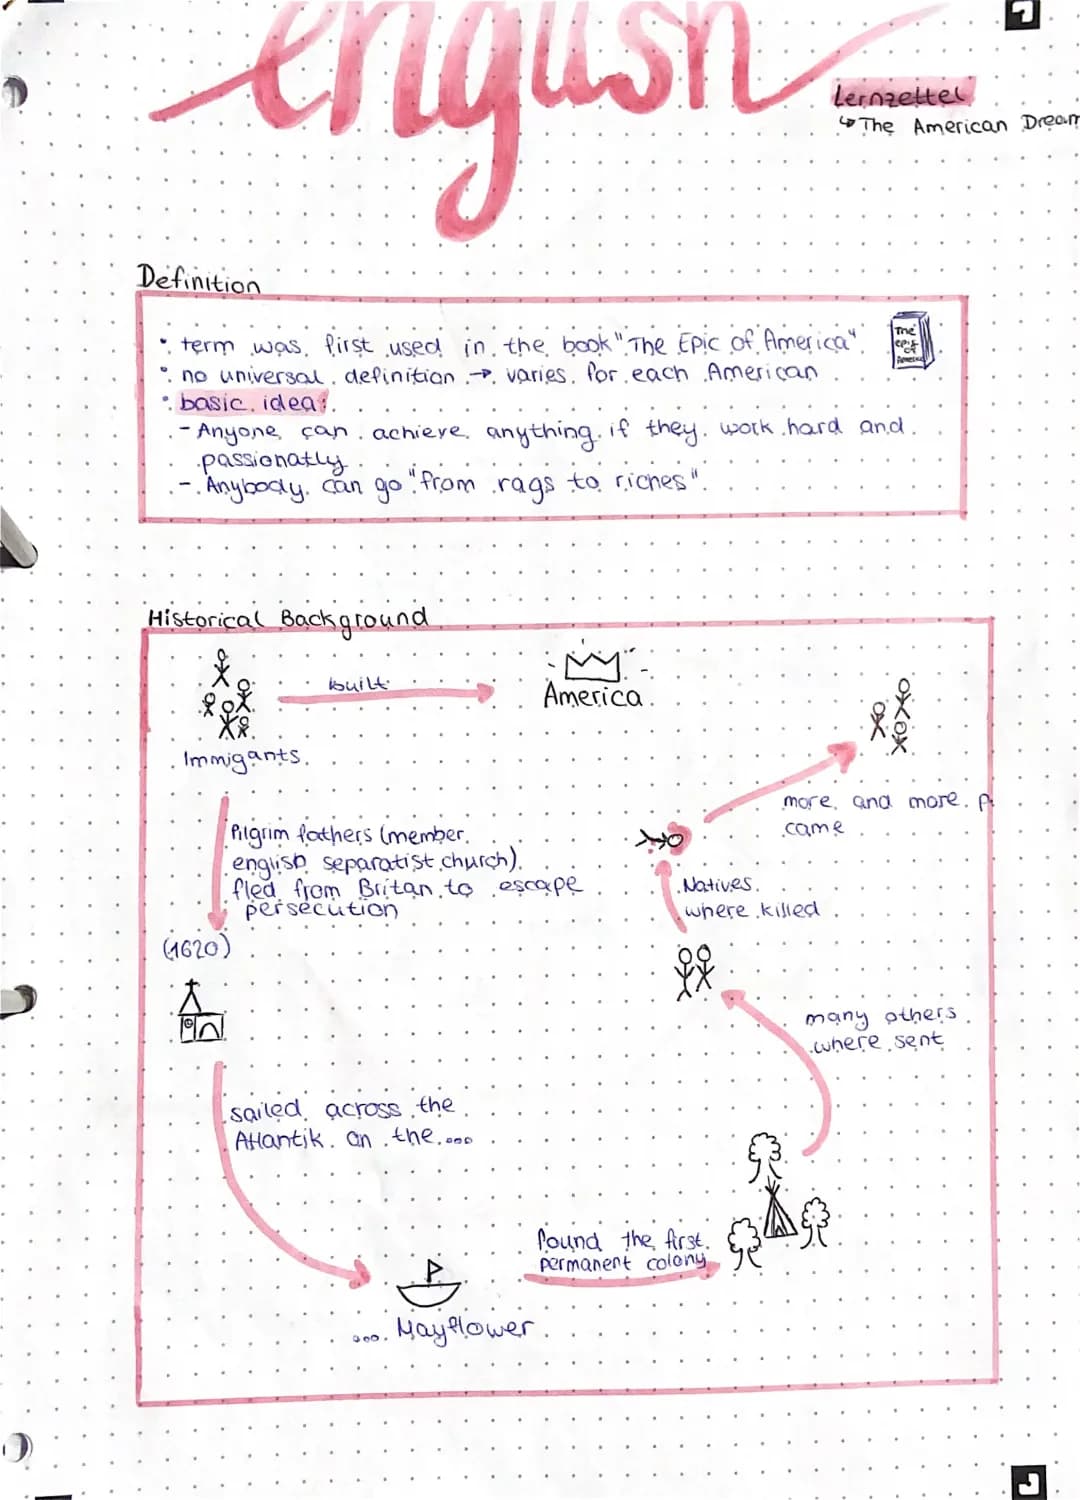 english
Lernzettel
↳ The American Dream
Definition
• term was first used in the book "The Epic of America"
The
epic
of
America
• no universal definition → varies for each American
• basic idea:
- Anyone can achieve anything if they work hard and
passionatly
- Anybody can go "from rags to riches"
Historical Background
built
America
Immigants
more and more p
came
Pilgrim fathers (member
english separatist church)
fled from Britan to escape
persecution
Natives
where killed
(1620)
many others
where sent
sailed across the
Atlantik on the...
found the first
permanent colony
... Mayflower